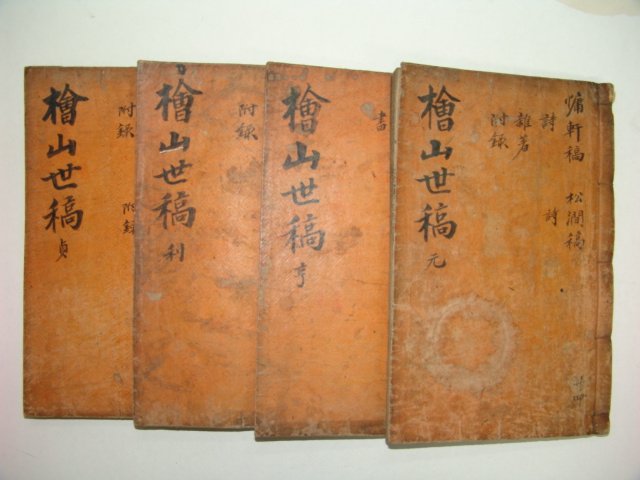 慵軒稿 松澗稿
詩 詩
雜著
附錄
檜山世稿 元
書
檜山世稿 亨
附錄
檜山世稿 利
附錄 附錄
檜山世稿 貞